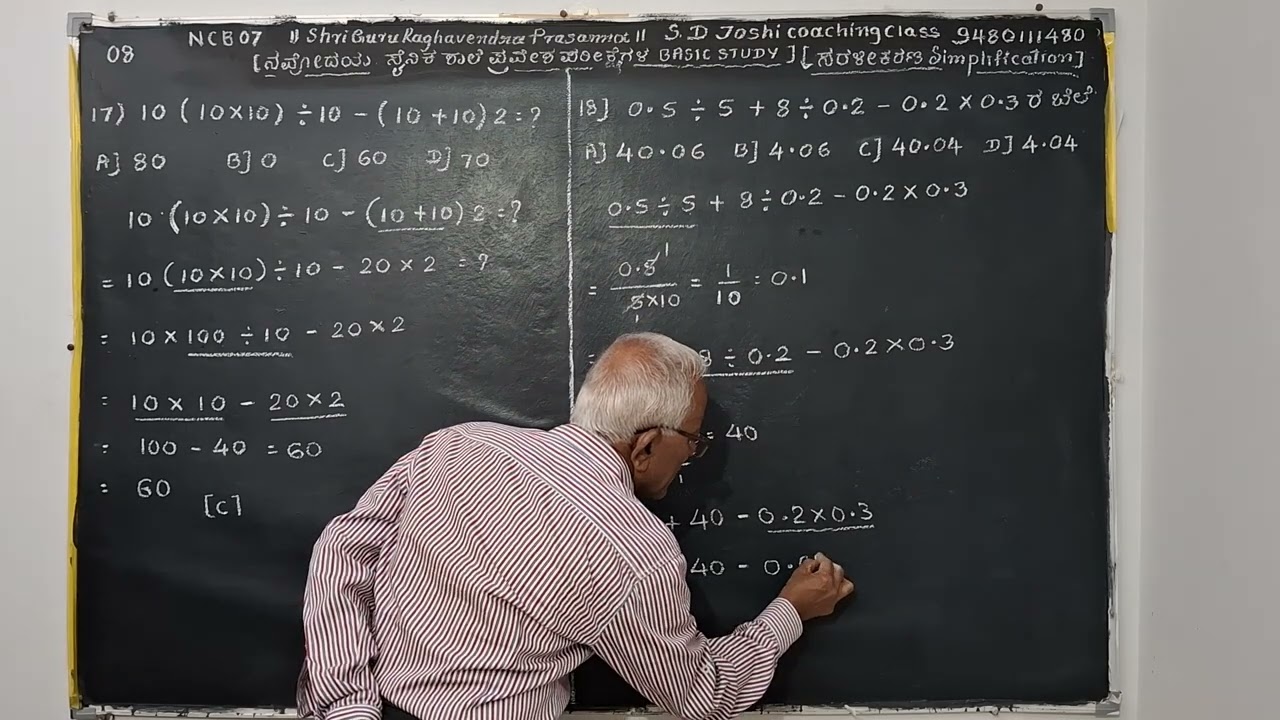 08 NCB07 ॥ Shri Guru Raghavendra Prasanna ॥ S.D Joshi coaching class 9480111480
[ನವೋದಯ ಸೈನಿಕ ಶಾಲೆ ಪ್ರವೇಶ ಪರೀಕ್ಷೆಗಳ BASIC STUDY] [ಸರಳೀಕರಣ Simplification]
17) 10 (10×10) ÷ 10 - (10 + 10) 2 = ?
A] 80 B] 0 C] 60 D] 70
10 (10×10) ÷ 10 - (10 + 10) 2 = ?
= 10 (10×10) ÷ 10 - 20 × 2 = ?
= 10 × 100 ÷ 10 - 20 × 2
= 10 × 10 - 20 × 2
= 100 - 40 = 60
= 60 [C]
18] 0.5 ÷ 5 + 8 ÷ 0.2 - 0.2 × 0.3 ರ ಬೆಲೆ
A] 40.06 B] 4.06 C] 40.04 D] 4.04
0.5 ÷ 5 + 8 ÷ 0.2 - 0.2 × 0.3
= 0.5 1 / 5×10 1 = 1/10 = 0.1
= 8 ÷ 0.2 - 0.2 × 0.3
= 40
1
+ 40 - 0.2 × 0.3
40 - 0.